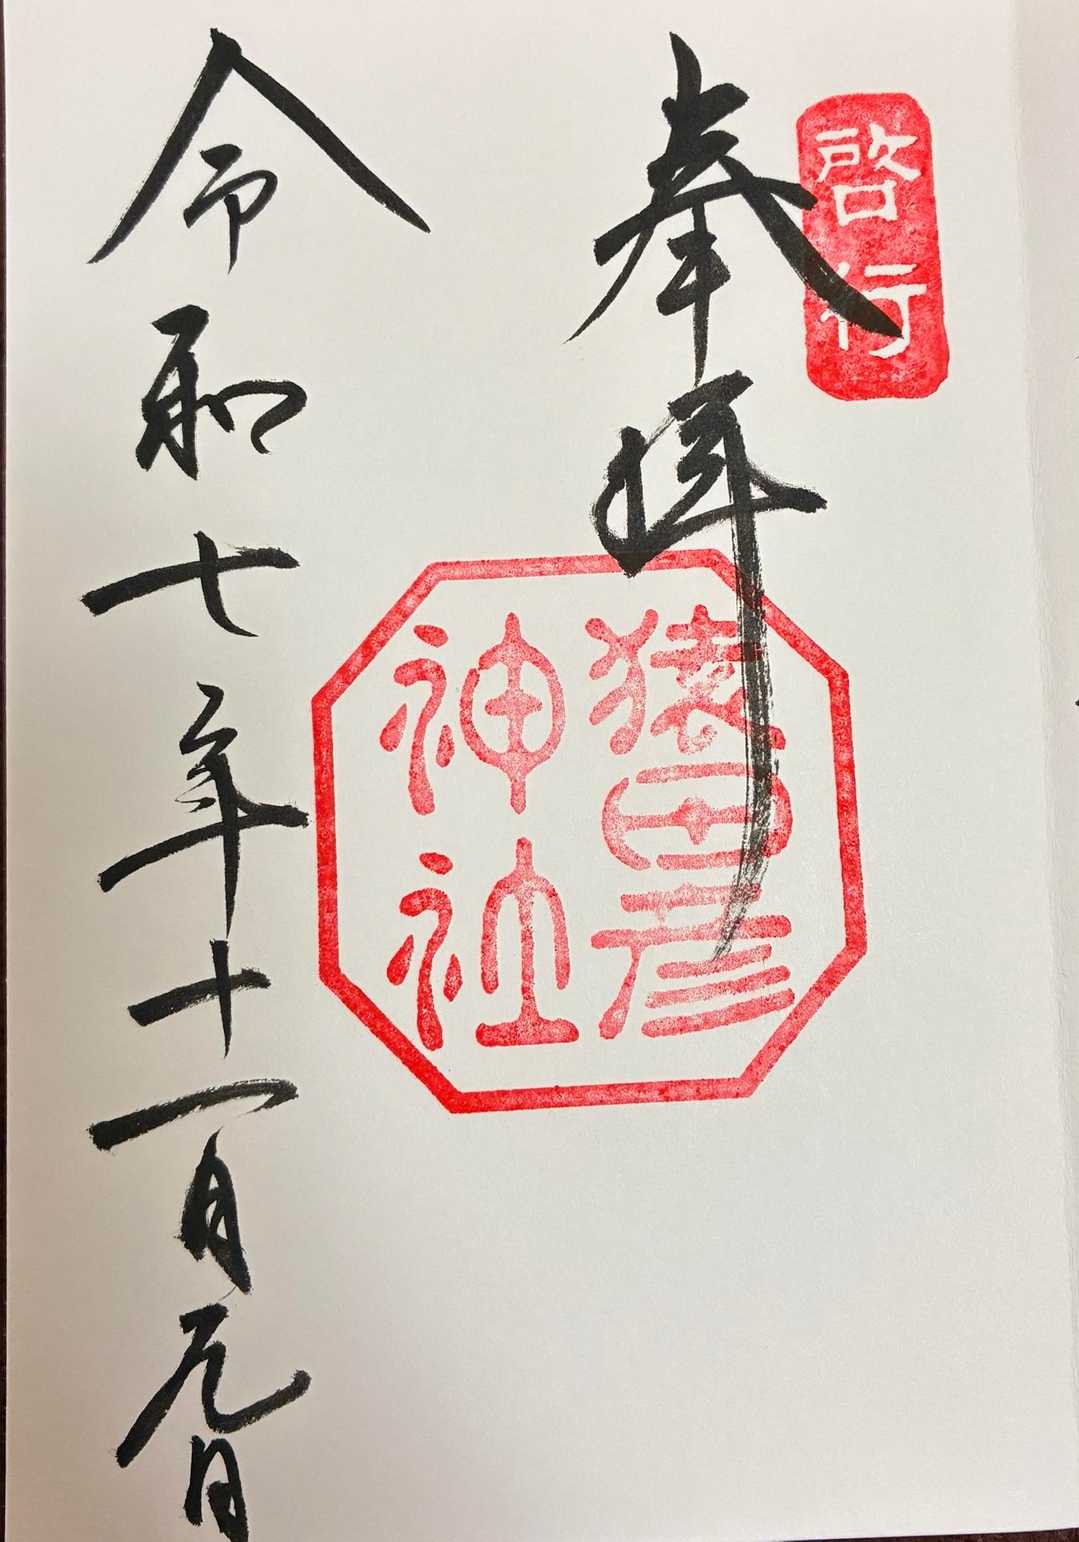 啓行
奉拝
猿田彦
神社
令和七年十一月元日